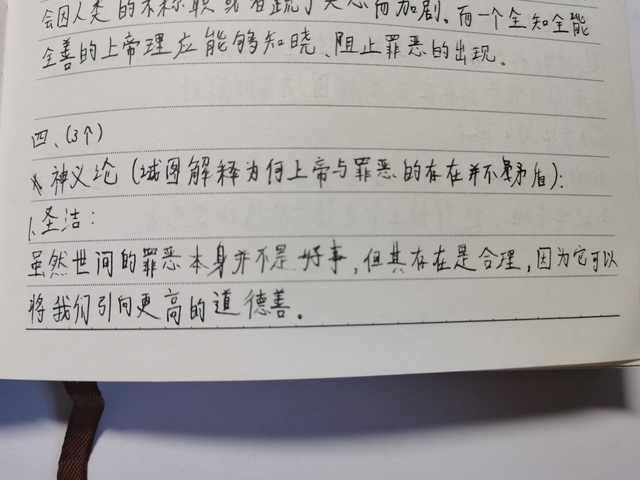 会因人类的不称职或者疏于关心而加剧。而一个全知全能
全善的上帝理应能够知晓、阻止罪恶的出现。
四、(3个)
* 神义论(试图解释为何上帝与罪恶的存在并不矛盾):
1.圣洁:
虽然世间的罪恶本身并不是好事,但其存在是合理,因为它可以
将我们引向更高的道德善。